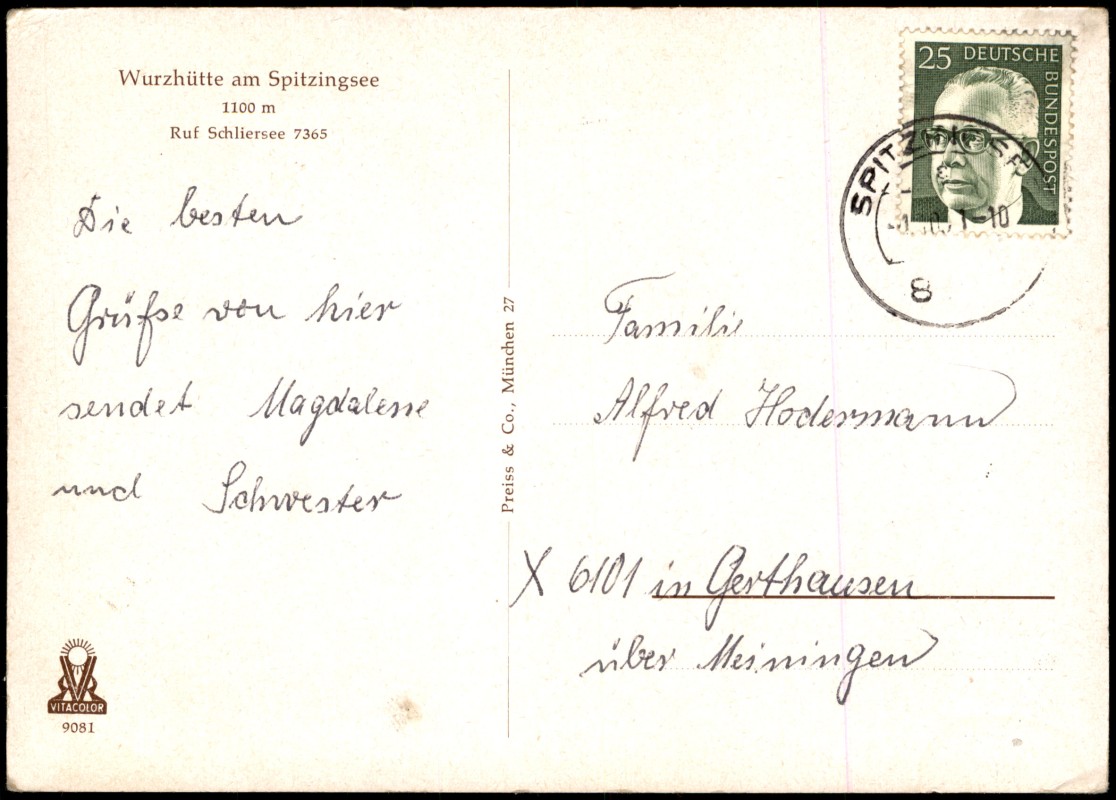 Wurzhütte am Spitzingsee
1100 m
Ruf Schliersee 7365
Die besten
Grüße von hier
sendet Magdalene
und Schwester
VITACOLOR
9081
Preiss & Co., München 27
25 DEUTSCHE BUNDESPOST
8
Familie
Alfred Hodermann
X 6101 in Gerthausen
über Meiningen